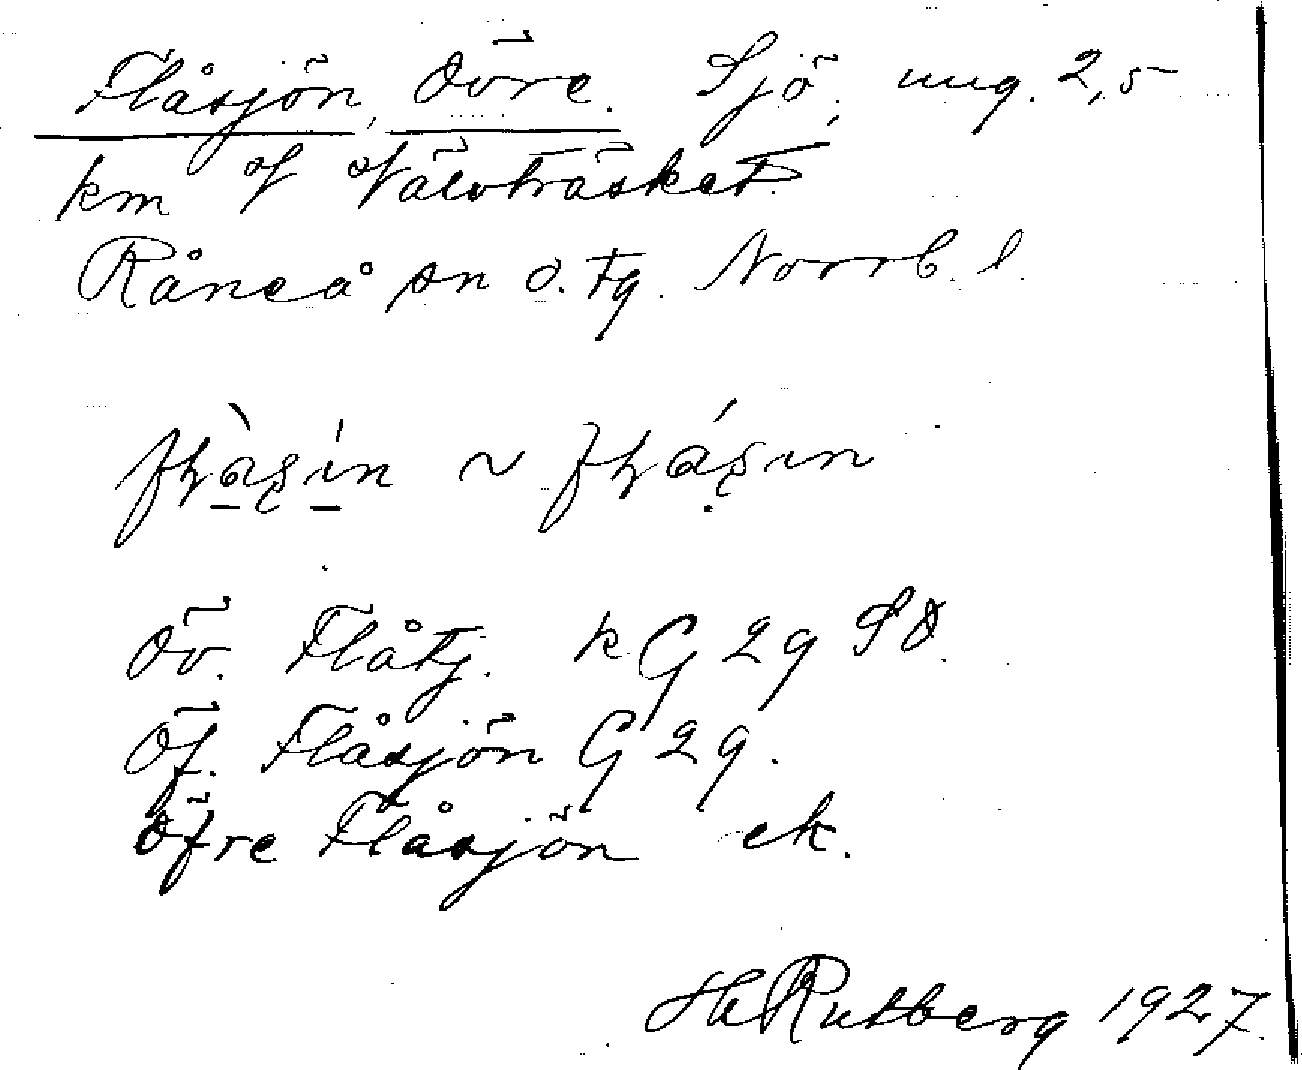 Flåsjön, Övre. Sjö, ung. 2,5
km V Välvträsket.
Råneå sn ö. tg. Norrb. l.
Öv. Flåtj. kG 29 SO.
Öf. Flåsjön G 29.
Öfre Flåsjön ek.
Rutberg 1927.